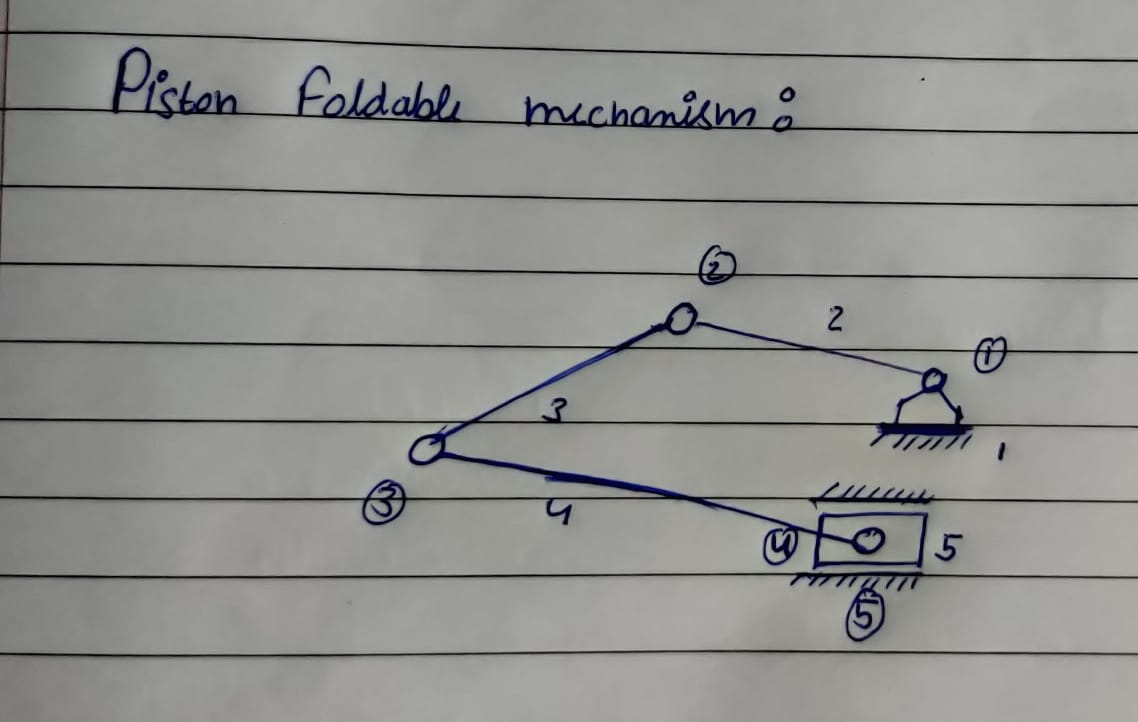 Piston foldable mechanism:
②
2
①
3
1
③
4
④
5
⑤